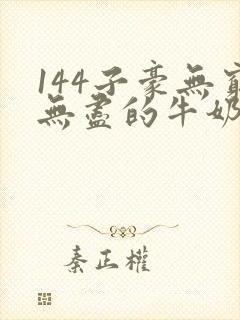 144子豪無窮
無盡的牛奶
秦正權